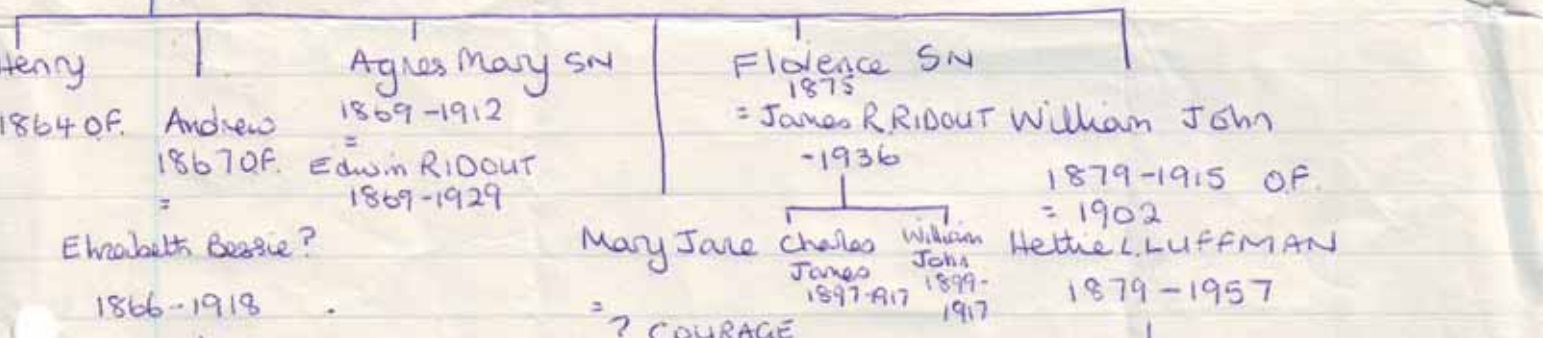 Henry
1864 OF.
Andrew
1867 OF.
=
Elizabeth Bessie?
1866-1918
Agnes Mary SN
1869-1912
=
Edwin RIDOUT
1869-1929
Mary Jane
=
? COURAGE
Florence SN
1875
= James R. RIDOUT
-1936
Charles
James
1897-1917
William
John
1899-
1917
William John
1879-1915 OF.
= 1902
Hettie L. LUFFMAN
1879-1957